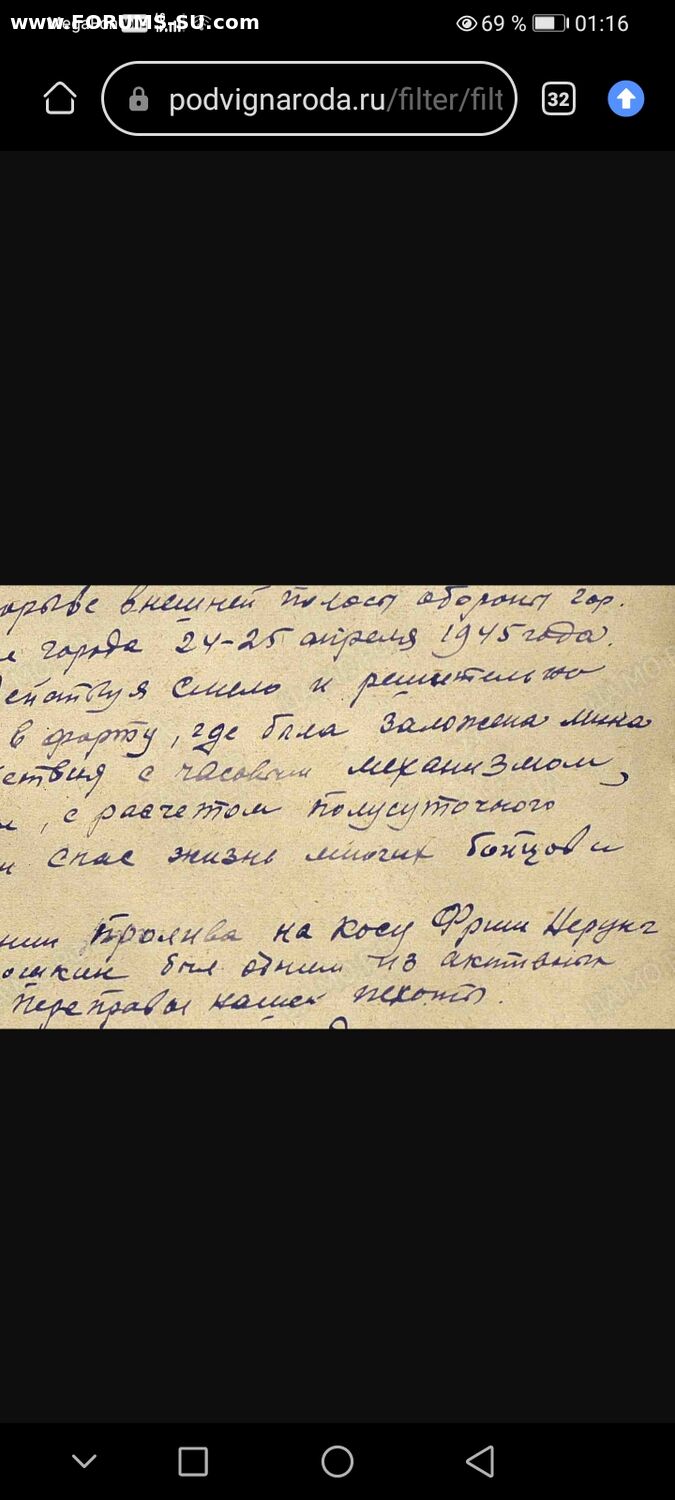 www.FORUMS-SU.com
69 % 01:16
podvignaroda.ru/filter/filt
32
орыве внешней полосы обороны гор.
города 24-25 апреля 1945 года.
действуя смело и решительно
в форту, где была заложена мина
ствия с часовым механизмом,
, с расчетом полусуточного
спас жизнь многих бойцов и
нии пролива на косу Фриш Нерунг
ошкин был одним из активных
переправы нашей пехоты.